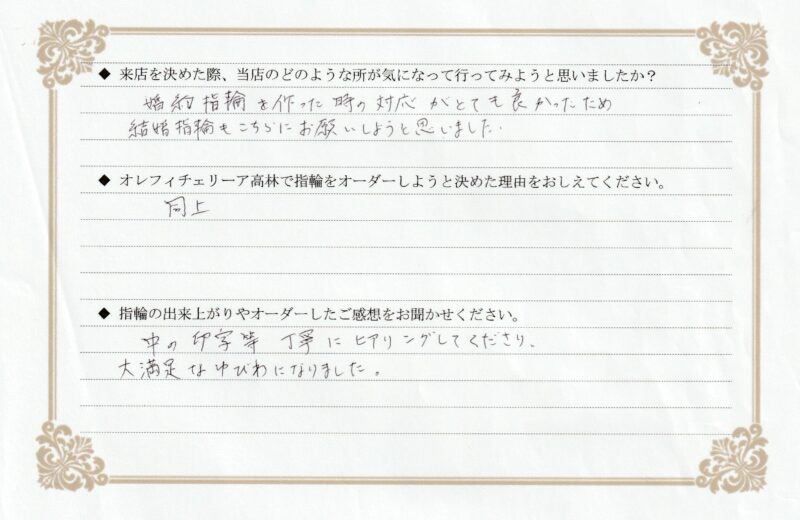 ◆ 来店を決めた際、当店のどのような所が気になって行ってみようと思いましたか？
婚約指輪を作った時の対応がとても良かったため
結婚指輪もこちらにお願いしようと思いました.
◆ オレフィチェリーア高林で指輪をオーダーしようと決めた理由をおしえてください。
同上
◆ 指輪の出来上がりやオーダーしたご感想をお聞かせください。
中の印字等 丁寧にヒアリングしてくださり、
大満足なゆびわになりました。